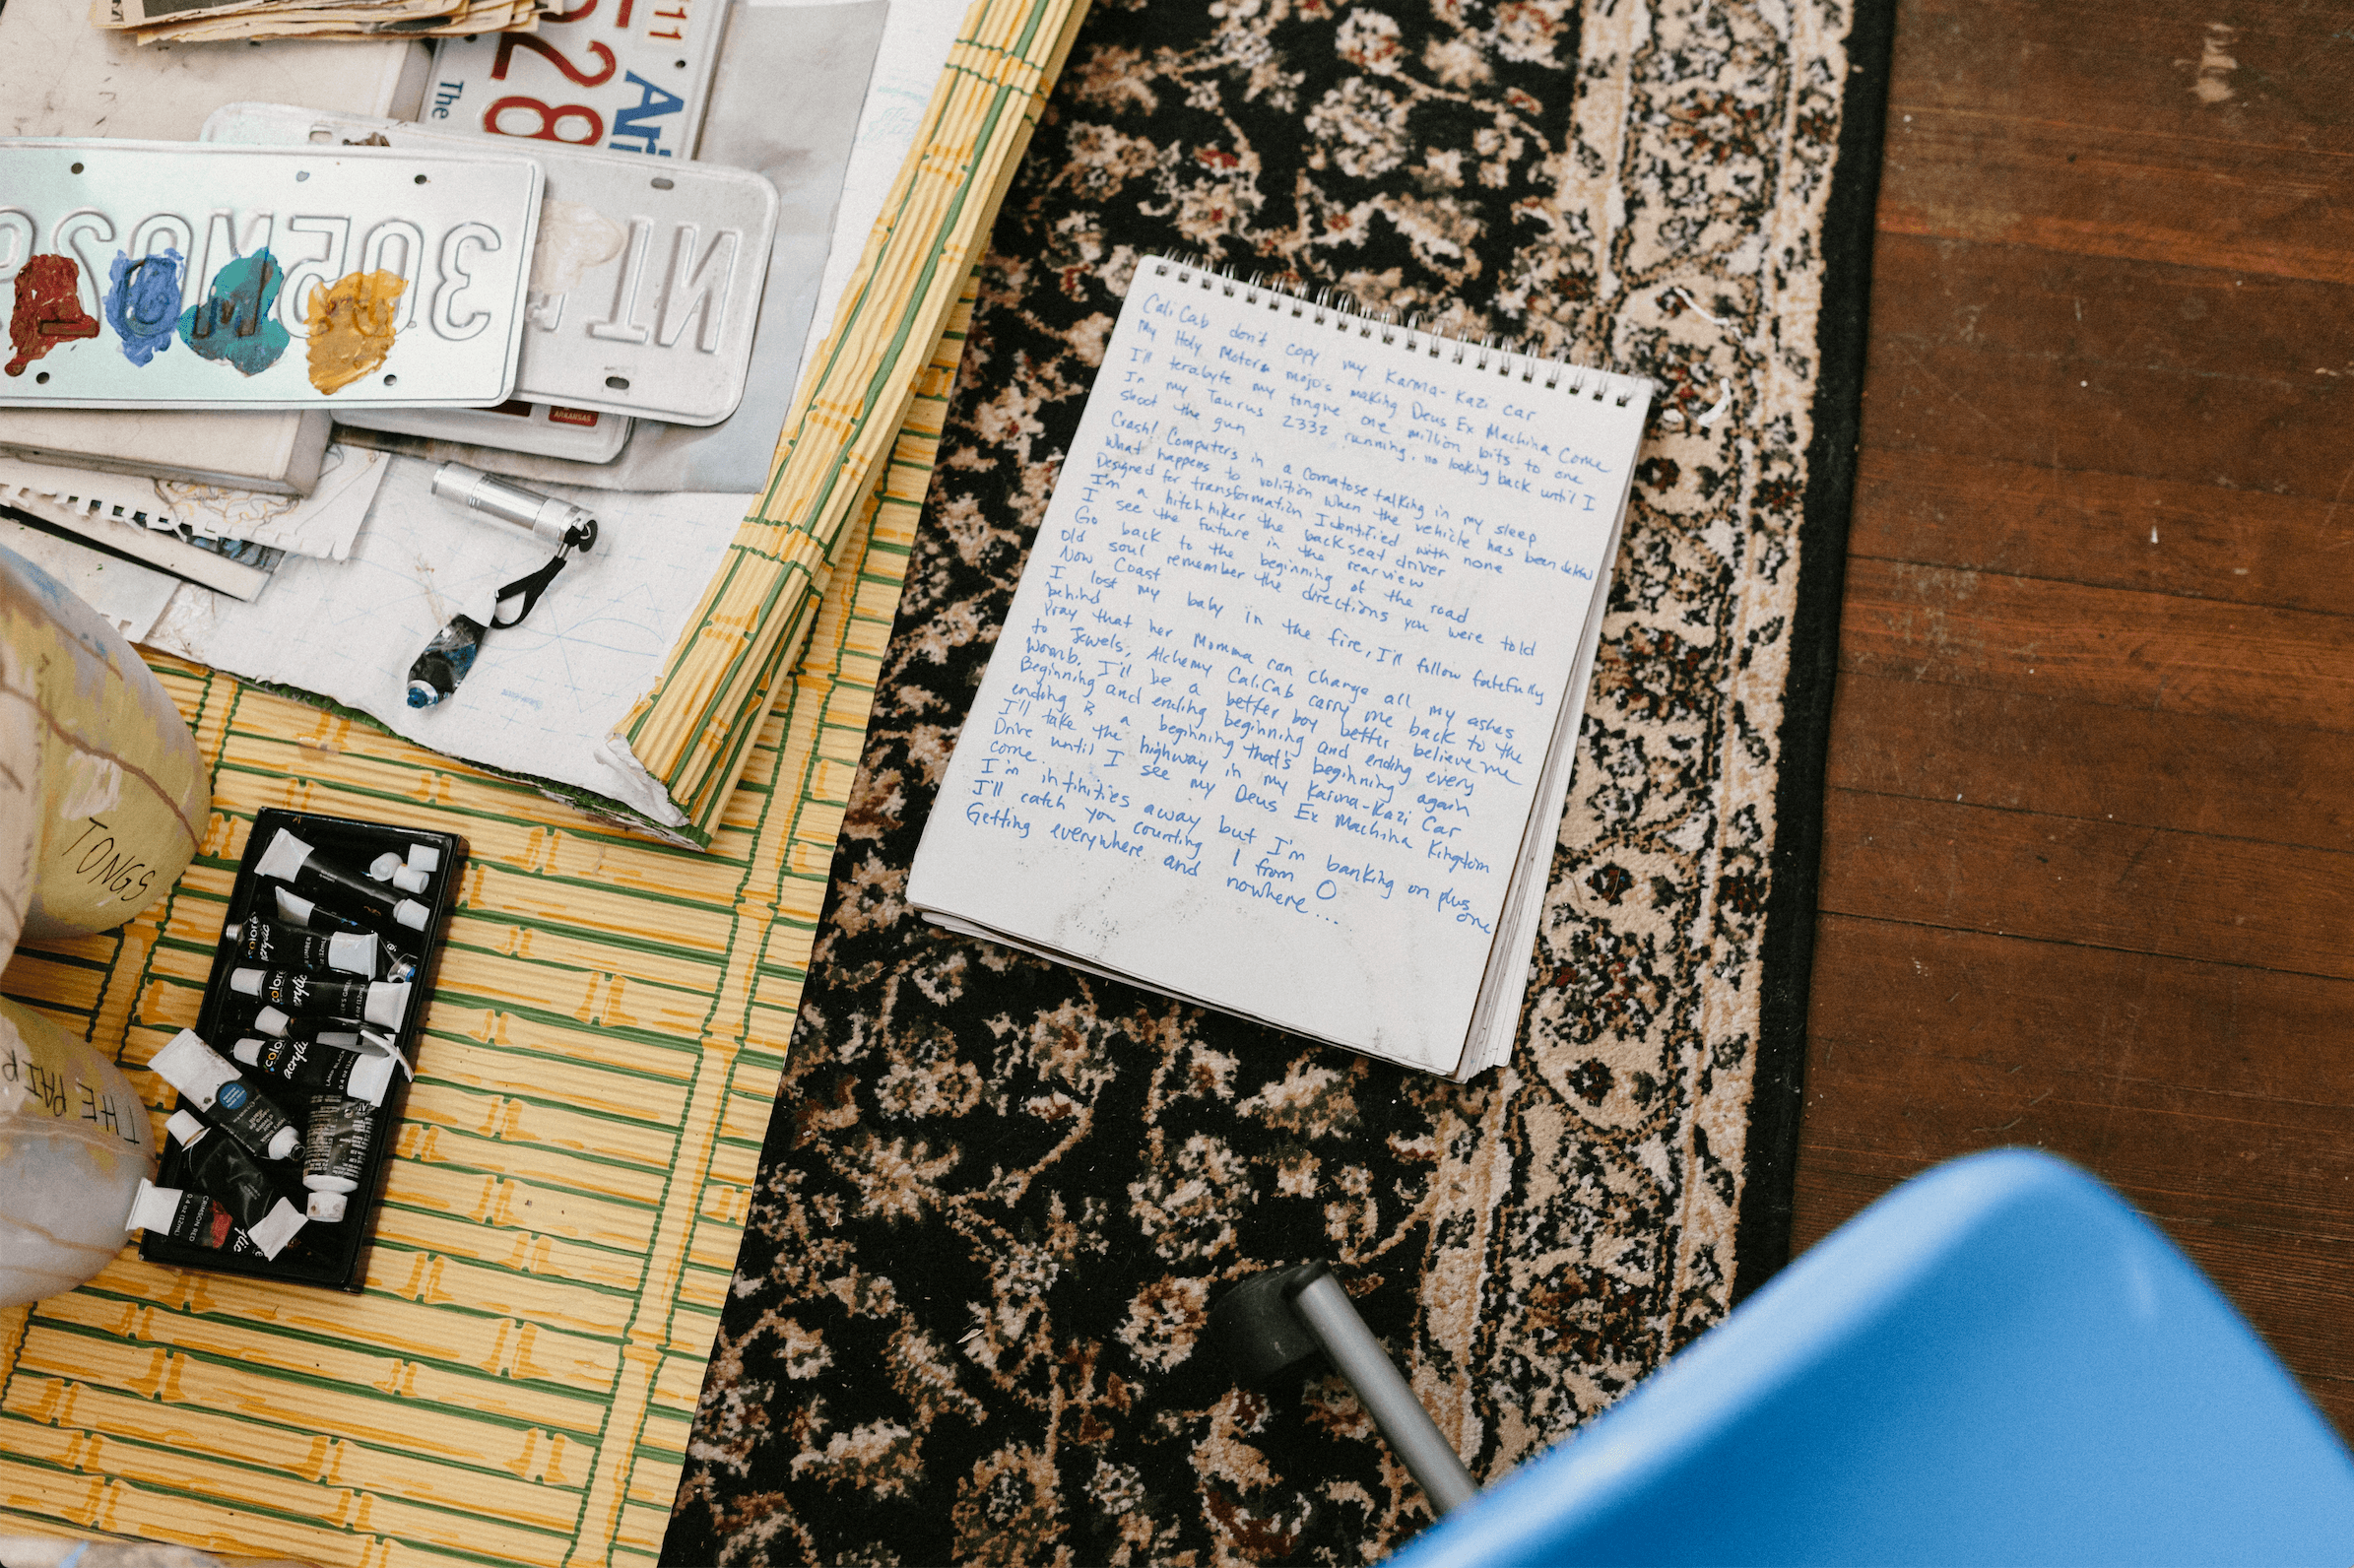 11
E28
Ari
The
30EN029
NI
ARKANSAS
CaliCab don't copy my Karma-Kazi car
My Holy Motors mojo's making Deus Ex Machina come
I'll terabyte my tongue one million bits to one
In my Taurus 2332 running, no looking back until I
shoot the gun
Crash! Computers in a comatose talking in my sleep
What happens to volition when the vehicle has been
Designed for transformation Identified with none
I'm a hitchhiker the backseat driver
I see the future in the rearview
Go back to the beginning of the road
Old soul remember the directions you were told
Now Coast
I lost my baby in the fire, I'll follow fatefully
behind
Pray that her Momma can change all my ashes
to Jewels, Alchemy CaliCab carry me back to the
Womb. I'll be a better boy better believe me
Beginning and ending beginning and ending every
ending is a beginning that's beginning again
I'll take the highway in my Karma-Kazi Car
Drive until I see my Deus Ex Machina Kingdom
come
I'm infinities away but I'm banking on plus one
I'll catch you counting 1 from 0
Getting everywhere and nowhere...
TONGS
THE PAIR
colore
acrylic
colore
acrylic
LAMP BLACK
CRIMSON RED
0.4 oz (12mL)